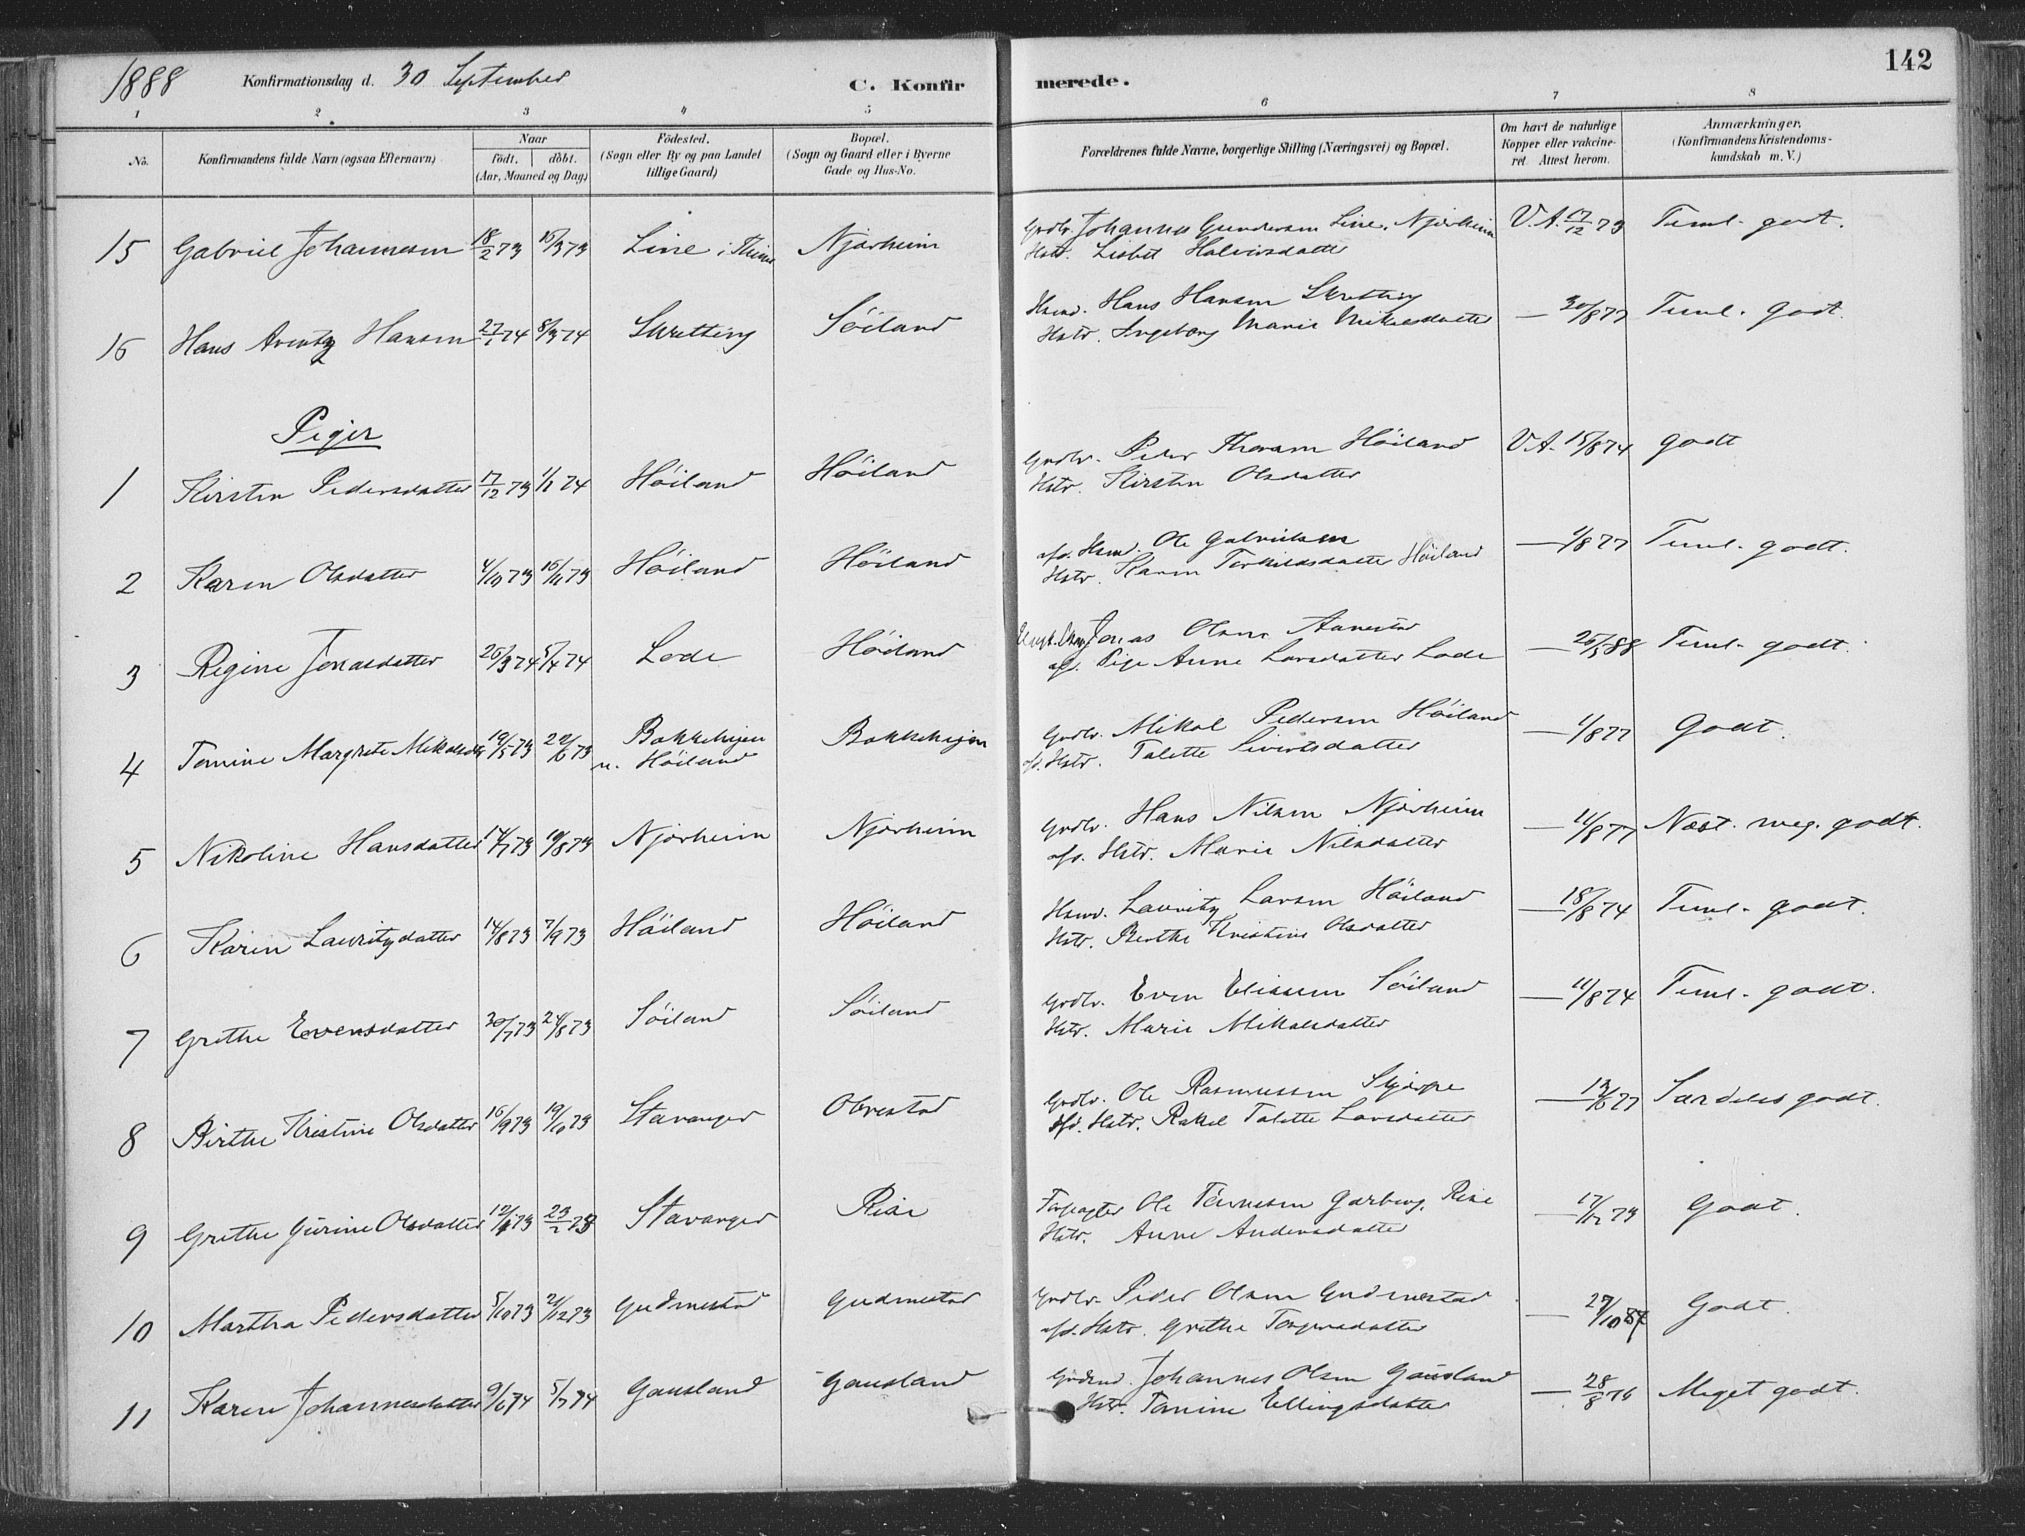 142
1888 Konfirmationsdag d. 30 September C. Konfirmerede.
1 2 3 4 5 6 7 8
No. Konfirmandens fulde Navn (ogsaa Efternavn) Naar födt. döbt. (Aar, Maaned og Dag) Födested. (Sogn eller By og paa Landet tillige Gaard) Bopæl. (Sogn og Gaard eller i Byerne Gade og Hus-No. Forældrenes fulde Navne, borgerlige Stilling (Næringsvei) og Bopæl. Om havt de naturlige Kopper eller vakcineret Attest herom. Anmærkninger. (Konfirmandens Kristendomskundskab m. V.)
15 Gabriel Johannesen 18/2 73 16/3 73 Line i Thime Njærheim Grdbr. Johannes Gundersen Line, Njærheim V.A. 17/12 73 Teml. godt.
Hstr. Lisbet Halvorsdatter
16 Hans Arentz Hansen 27/1 74 8/3 74 Skretting Söiland Hsmd. Hans Hansen Skretting — 30/8 77 Teml. Godt.
Hstr. Ingeborg Marie Mikaelsdatter
Piger
1 Kirsten Pedersdatter 17/12 73 1/1 74 Höiland Höiland Grdbr. Peder Thorsen Höiland V.A. 15/8 74 godt
Hstr. Kirsten Olsdatter
2 Karen Olsdatter 4/10 73 16/11 73 Höiland Höiland afd. Hsmd. Ole Gabrielsen — 1/8 77 Teml. godt.
Hstr. Karen Torkildsdatter Höiland
3 Regine Jonasdatter 26/3 74 5/4 74 Lode Höiland Jonas Olsen Aanestad — 26/5 88 Teml. godt.
Pige Anne Larsdatter Lode
4 Tomine Margrete Mikalsdtr 19/5 73 22/6 73 Bokkehejen Bokkehejen Grdbr. Mikal Pedersen Höiland — 1/8 77 Godt.
u. Höiland afd. Hstr. Talette Sivertsdatter
5 Nikoline Hansdatter 14/7 73 10/8 73 Njærheim Njærheim Grdbr. Hans Nilsen Njærheim — 11/8 77 Næst. meg. godt.
afd. Hstr. Marie Nilsdatter
6 Karen Lauritzdatter 14/8 73 7/9 73 Höiland Höiland Hsmd. Lauritz Larsen Höiland — 18/8 74 Teml. godt.
Hstr. Berthe Kristine Olsdatter
7 Grethe Evensdatter 30/7 73 24/8 73 Söiland Söiland Grdbr. Even Eliassen Söiland — 11/8 74 Teml. godt.
Hstr. Marie Mikalsdatter
8 Birthe Kristine Olsdatter 16/9 73 19/10 73 Stavanger Obrestad Grdbr. Ole Rasmussen Skjærpe — 13/6 77 Særdeles godt.
afd. Hstr. Rakel Talette Larsdatter
9 Grethe Gurine Olsdatter 12/1 73 23/2 73 Stavanger Risa Forpagter Ole Tönnesen Garborg, Risa — 17/12 73 Godt.
Hstr. Anne Andersdatter
10 Martha Pedersdatter 5/10 73 21/12 73 Gudmestad Gudmestad Grdbr. Peder Olsen Gudmestad — 29/10 84 Godt.
afd. Hstr. Grethe Torgersdatter
11 Karen Johannesdatter 9/6 74 5/7 74 Gausland Gausland Grdmd. Johannes Olsen Gausland — 28/8 76 Meget godt.
Hstr. Tomine Ellingsdatter